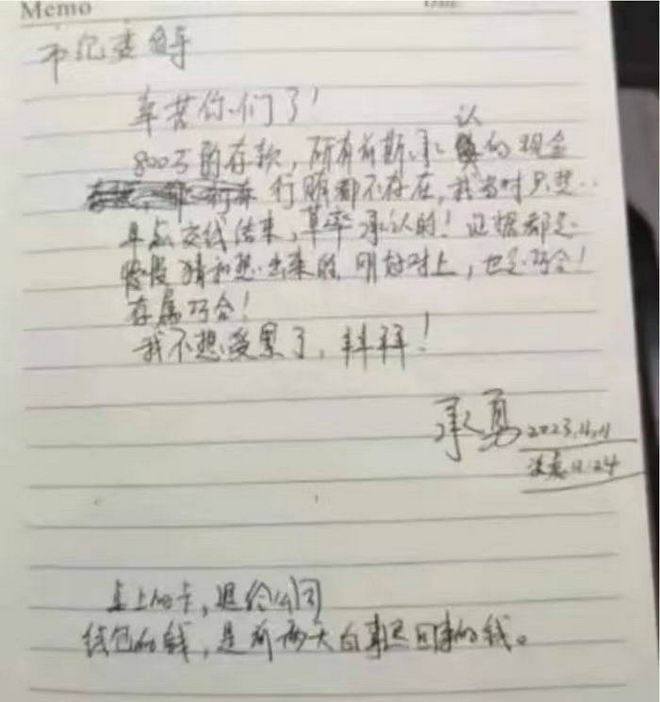 Memo
市纪委领导
辛苦你们了！
认
800万的存款，所有前期承 的现金
行贿都不存在，我当时只想
早点交代结束，草率承认的！证据都是
猜和想出来的 刚好对上，也是巧合！
存属巧合！
我不想受累了，拜拜！
承勇 2023.11.11
凌晨 11:24
桌上的卡，退给公司
钱包的钱，是前两天白事回事的钱。